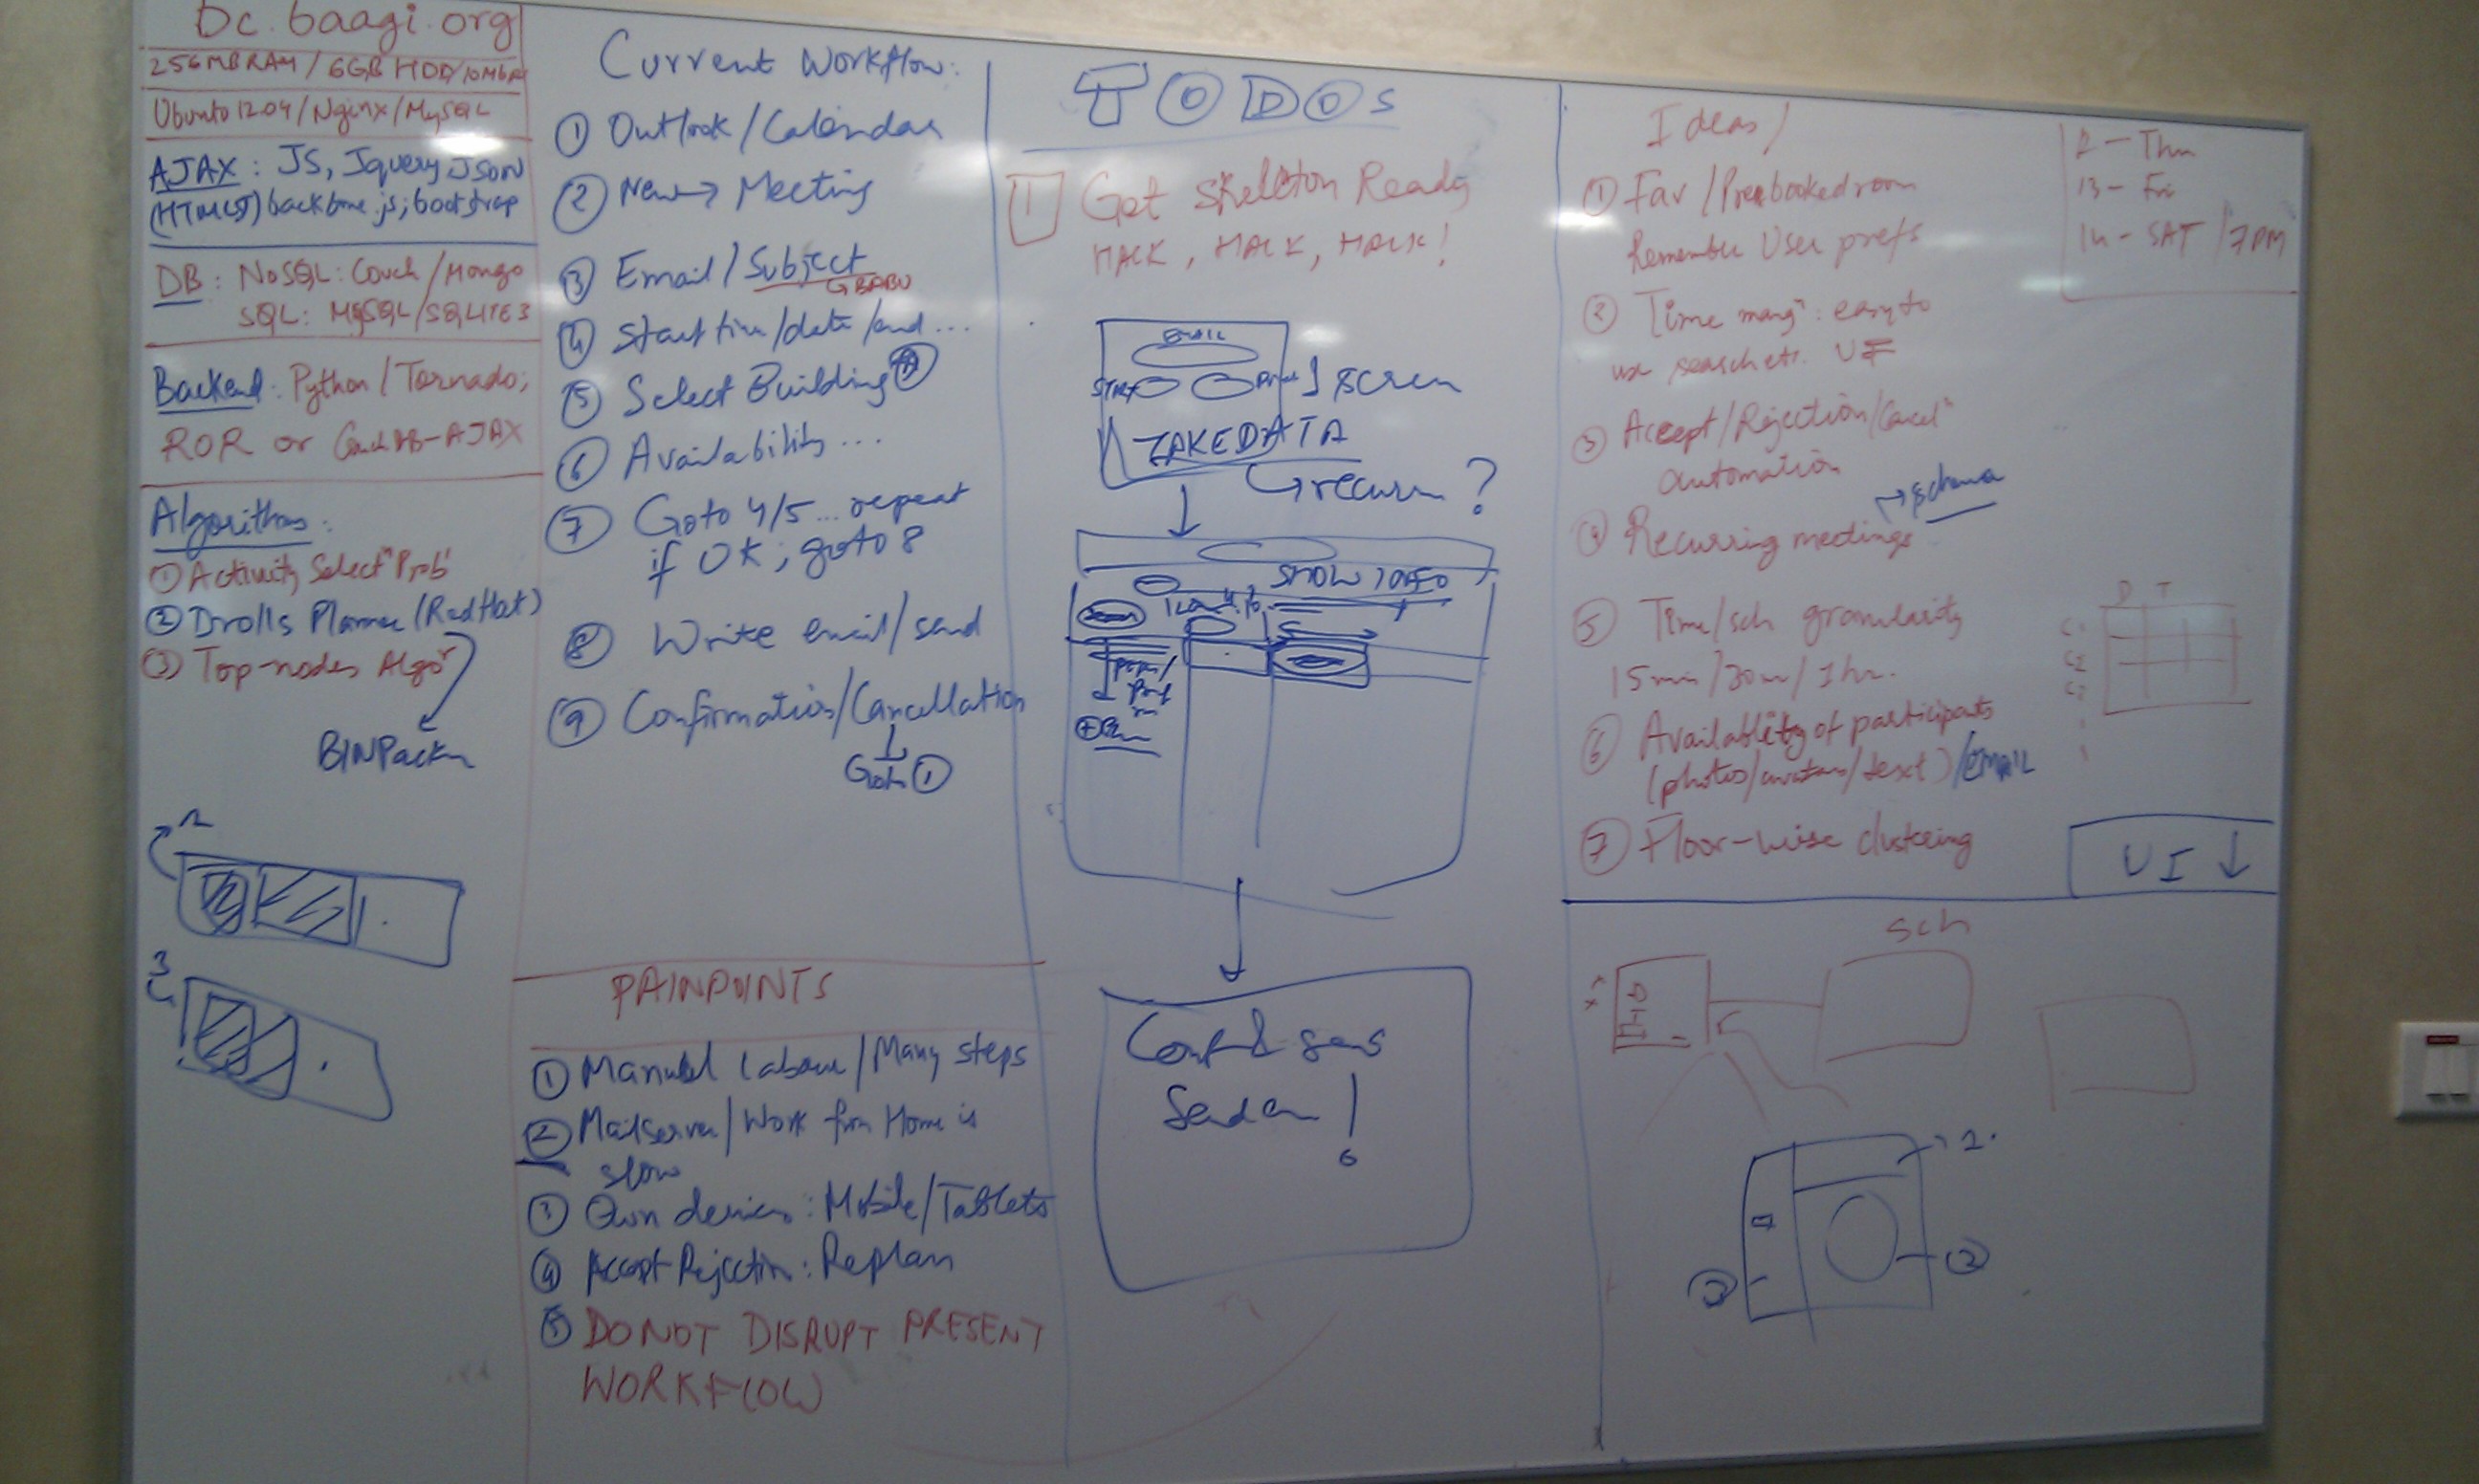 bc.baagi.org
256MB RAM / 6GB HDD/10Mbps
Ubuntu 12.04 / Nginx / MySQL
AJAX : JS, Jquery, JSON
(HTML5) backbone.js; bootstrap
DB : NoSQL : Couch / Mongo
SQL: MySQL/SQLITE3
Backend : Python / Tornado;
ROR or CouchDB-AJAX
Algorithms :
① Activity Selectⁿ Prob
② Drolls Planner (RedHat)
③ Top-nodes Algoʳ
BINPackn
2
3
Current Workflow:
① Outlook / Calendar
② New → Meeting
③ Email / Subject
GBABU
④ Start time/date/end ...
⑤ Select Building
⑥ Availability ...
⑦ Goto 4/5 ... repeat
if OK ; goto 8
⑧ Write email / send
⑨ Confirmation/Cancellation
Goto ①
PAINPOINTS
① Manual labour / Many steps
② Mailserver / Work from Home is
slow
③ Own devices : Mobile/Tablets
④ Accept Rejection : Replan
⑤ DO NOT DISRUPT PRESENT
WORKFLOW
TODOS
1 Get Skelton Ready
HACK, HACK, HACK!
EMAIL
START
1 screen
TAKE DATA
recurr ?
SHOW INFO
Conf &
Send !
Ideas /
① Fav / Prebooked room
Remember User prefs
② Time mangⁿ : easy to
use search etc. UI
③ Accept / Rejection / Cancelⁿ
automation
④ Recurring meetings → schema
⑤ Time/sch granularity
15min / 30m / 1hr.
⑥ Availablity of participants
(photos/avatars/text) / EMAIL
⑦ Floor-wise clustering
Thu
13 - Fri
14 - SAT / 7PM
D T
C1
C2
C3
UI ↓
Sch
2.